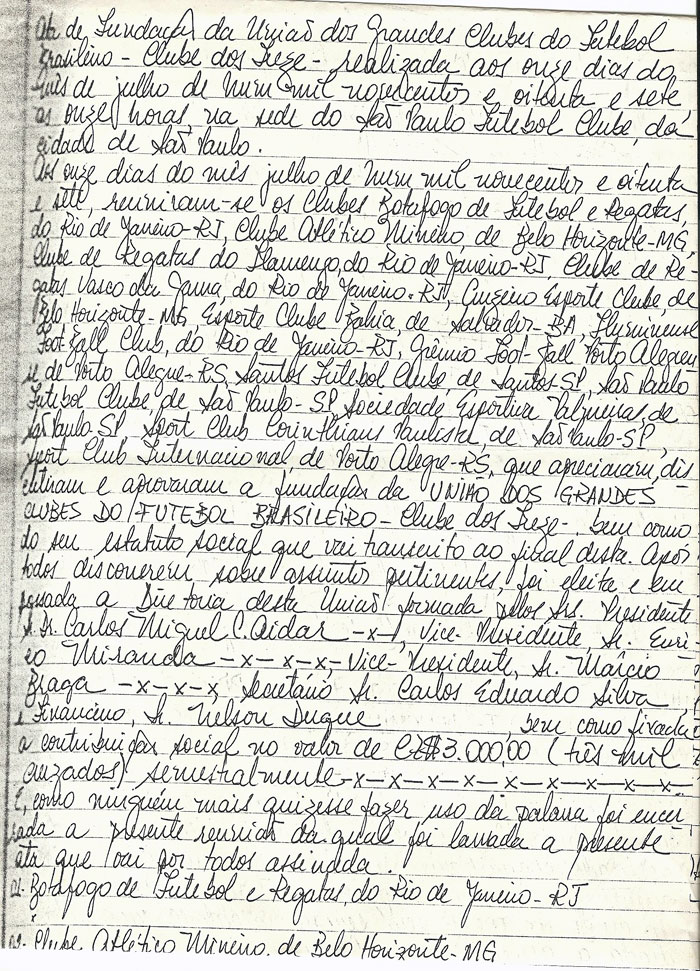 Ata de Fundação da União dos Grandes Clubes do Futebol
Brasileiro - Clube dos Treze - realizada aos onze dias do
mês de julho de Num mil novecentos e oitenta e sete
às onze horas na sede do São Paulo Futebol Clube, da
cidade de São Paulo.
Aos onze dias do mês julho de Num mil novecentos e oitenta
e sete, reuniram-se os Clubes Botafogo de Futebol e Regatas,
do Rio de Janeiro-RJ, Clube Atlético Mineiro, de Belo Horizonte-MG,
Clube de Regatas do Flamengo, do Rio de Janeiro-RJ, Clube de Re-
gatas Vasco da Gama, do Rio de Janeiro-RJ, Cruzeiro Esporte Clube, de
Belo Horizonte-MG, Esporte Clube Bahia, de Salvador-BA, Fluminense
Foot-Ball Club, do Rio de Janeiro-RJ, Grêmio Foot-Ball Porto Alegren
se de Porto Alegre-RS, Santos Futebol Clube de Santos-SP, São Paulo
Futebol Clube, de São Paulo-SP, Sociedade Esportiva Palmeiras, de
São Paulo-SP, Sport Club Corinthians Paulista, de São Paulo-SP,
Sport Club Internacional de Porto Alegre-RS, que apreciaram, dis
cutiram e aprovaram a fundação da UNIÃO DOS GRANDES
CLUBES DO FUTEBOL BRASILEIRO - Clube dos Treze -, bem como
do seu estatuto social que vai transcrito ao final desta. Após
todos discorrerem sobre assuntos pertinentes, foi eleita e em
possada a Diretoria desta União formada pelos Srs Presidente
Sr. Dr. Carlos Miguel C. Aidar -x-, Vice-Presidente Sr. Euri-
co Miranda -x-x-x-, Vice-Presidente, Sr. Márcio
Braga -x-x-x, Secretário Sr. Carlos Eduardo Silva,
e Financeiro, Sr. Nelson Duque , bem como fixada
a contribuição social no valor de CZ$3.000,00 (três mil
cruzados) semestralmente-x-x-x-x-x-x-x-x-x-
E, como ninguém mais quizesse fazer uso da palavra foi encer
rada a presente reunião da qual foi lavrada a presente
ata que vai por todos assinada.
01- Botafogo de Futebol e Regatas, do Rio de Janeiro-RJ
x
02- Clube Atlético Mineiro. de Belo Horizonte-MG